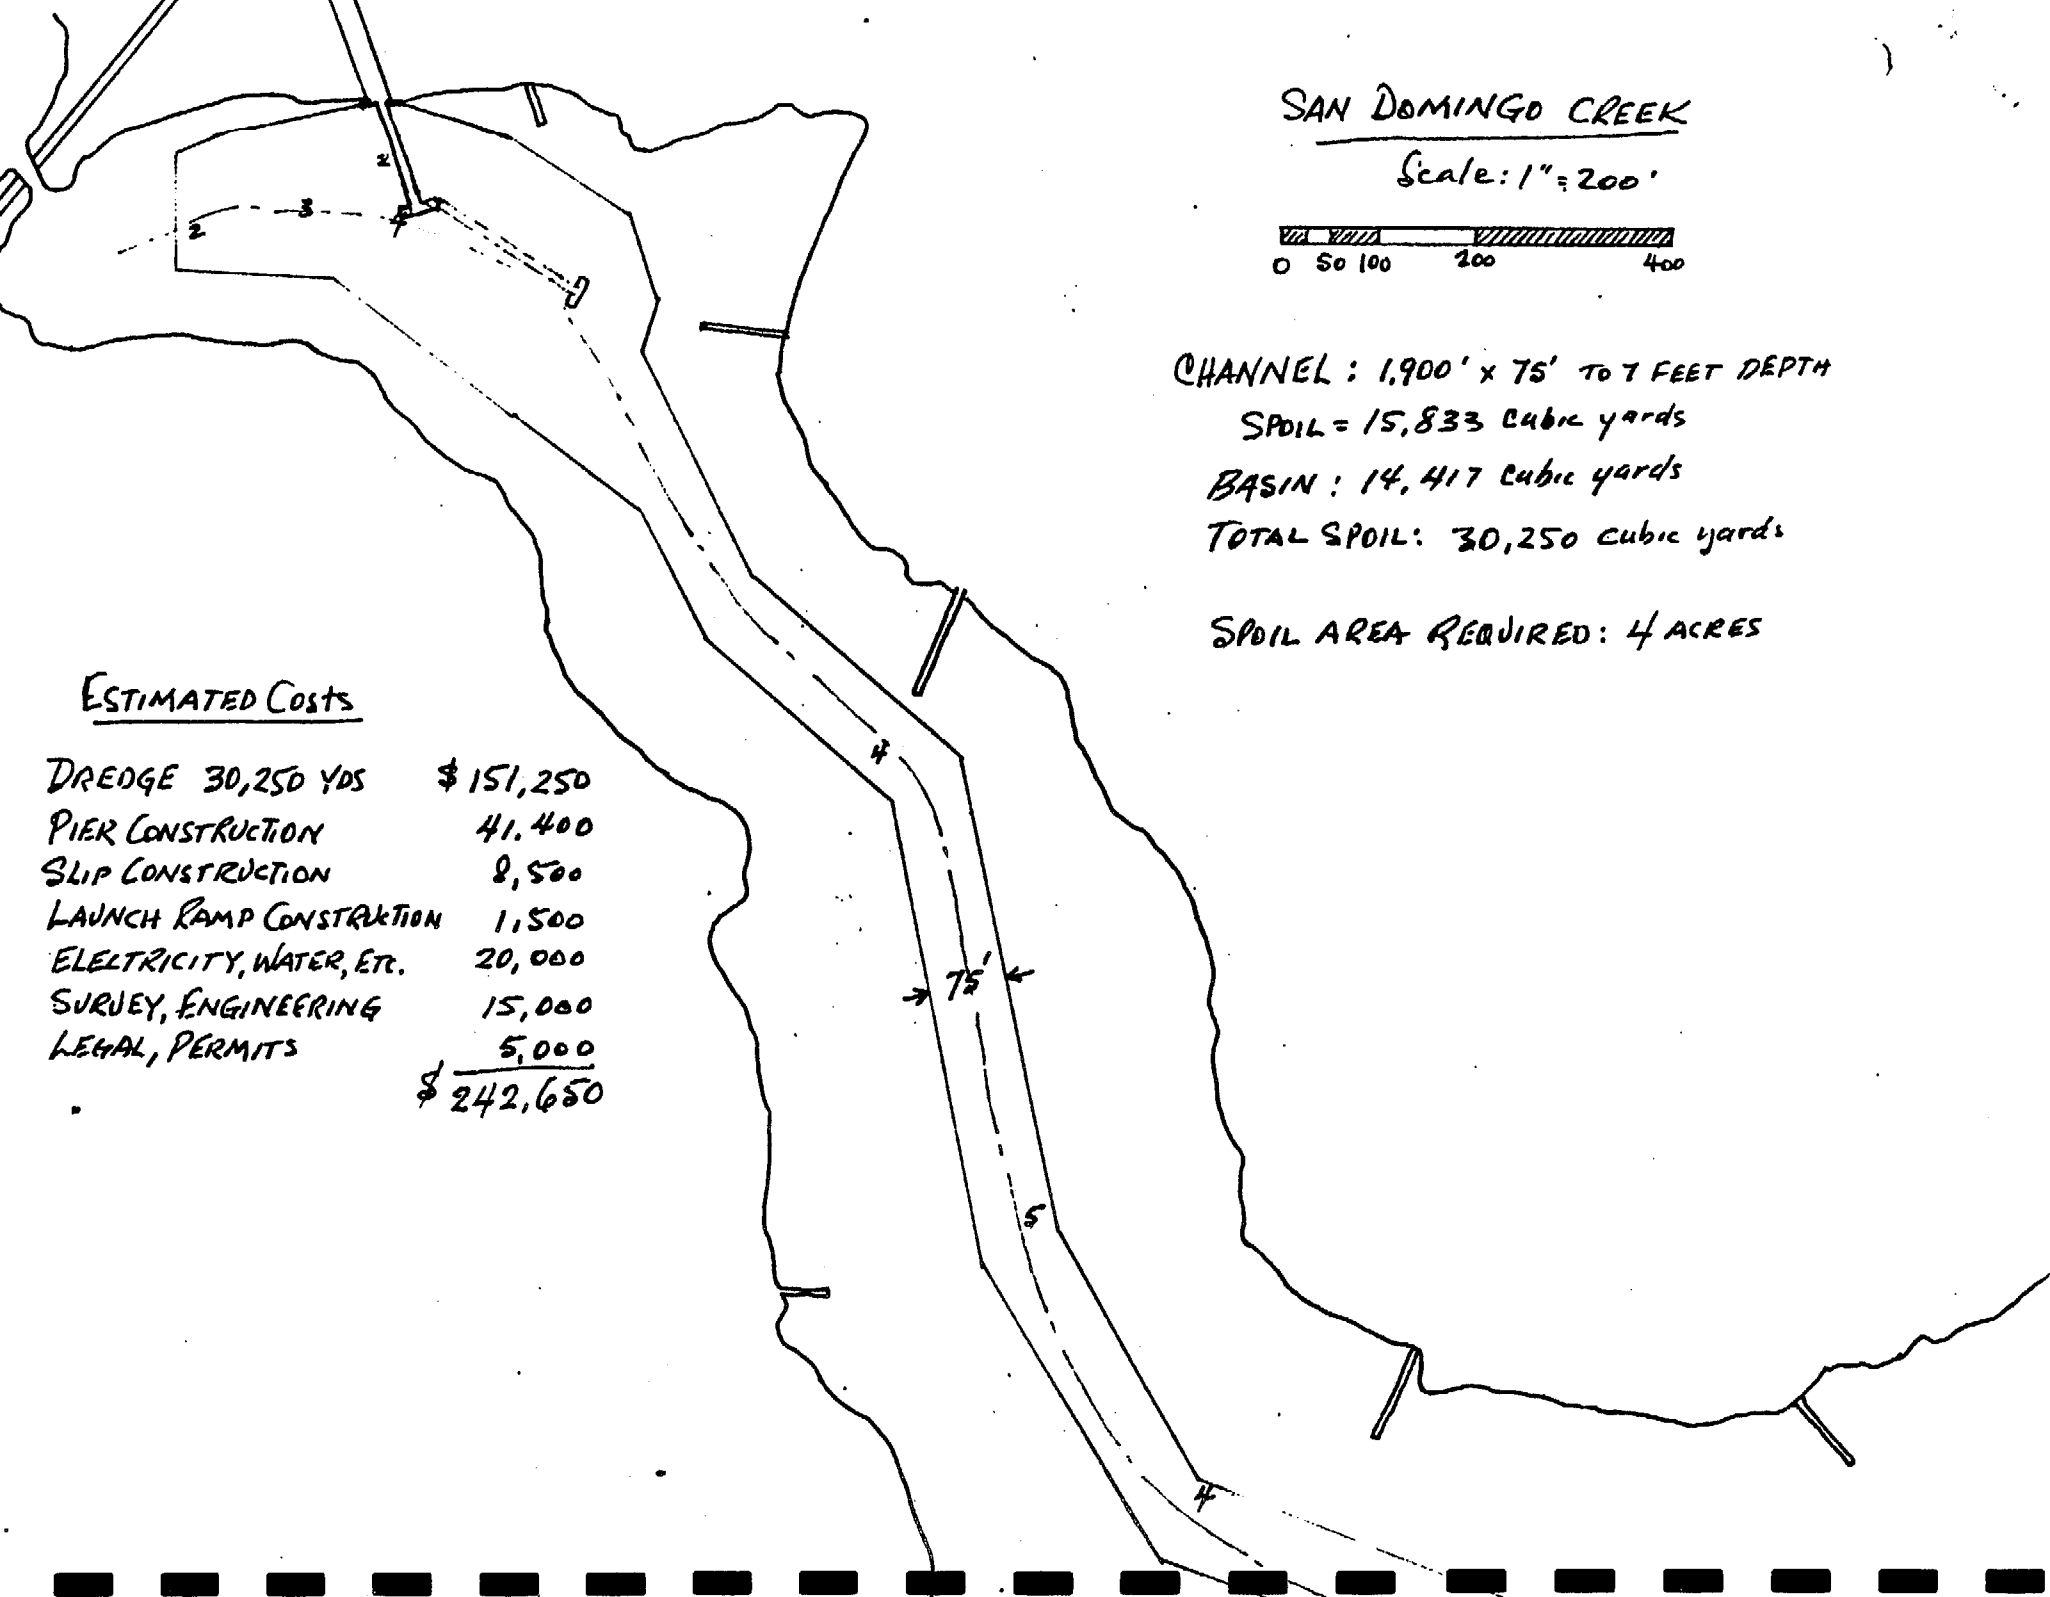 SAN DOMINGO CREEK
Scale: 1" = 200'
0 50 100 200 400
CHANNEL: 1,900' x 75' TO 7 FEET DEPTH
SPOIL = 15,833 cubic yards
BASIN: 14,417 cubic yards
TOTAL SPOIL: 30,250 cubic yards
SPOIL AREA REQUIRED: 4 ACRES
2
3
2
4
ESTIMATED COSTS
DREDGE 30,250 YDS $151,250
PIER CONSTRUCTION 41,400
SLIP CONSTRUCTION 8,500
LAUNCH RAMP CONSTRUCTION 1,500
ELECTRICITY, WATER, ETC. 20,000
SURVEY, ENGINEERING 15,000
LEGAL, PERMITS 5,000
$242,650
4
75'
5
4